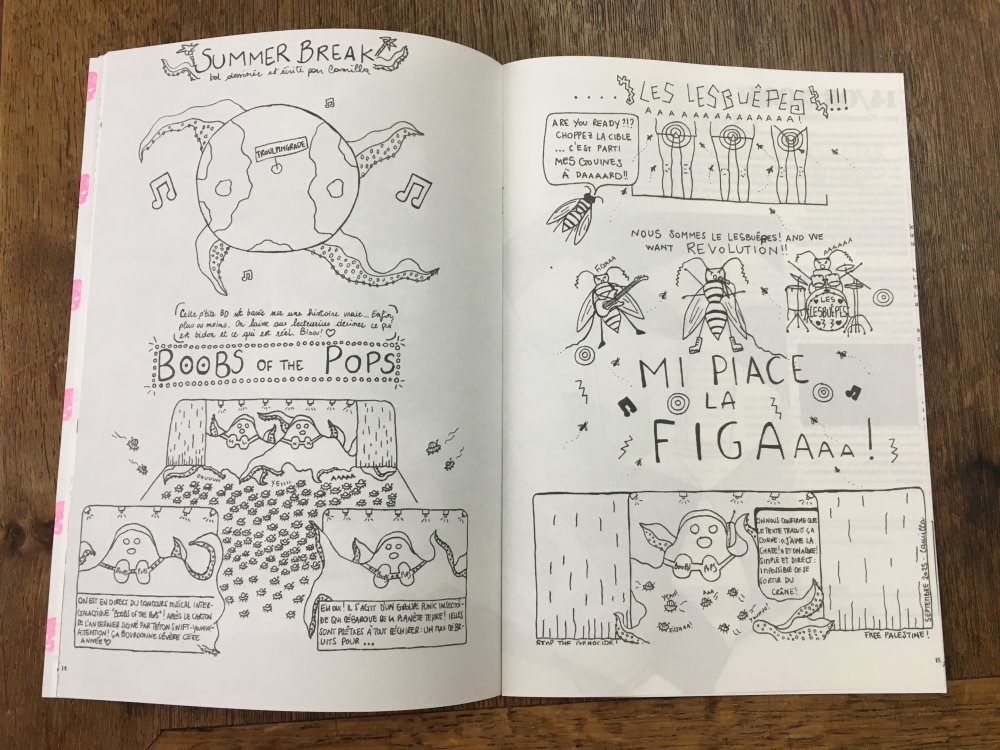 SUMMER BREAK
bd dessinée et écrite par Camilla
TROULPINGRADE
Cette p'tite BD est basée sur une histoire vraie... Enfin,
plus ou moins. On laisse aux lecteurices deviner ce qui
est bidon et ce qui est réel. Bisou! ♡
BOOBS OF THE POPS
OOUUUH
YEUU
AAAAA
BOOBS POPS
BOOBS POPS
ON EST EN DIRECT DU CONCOURS MUSICAL INTER-
GALACTIQUE "BOOBS OF THE POPS"! APRÈS LE CARTON
DE L'AN DERNIER SIGNÉ PAR TÉTON SWIFT
ATTENTION! ÇA BOURDONNE SÉVÈRE CETTE
ANNÉE ♡
EH OUI! IL S'AGIT D'UN GROUPE PUNK INSECTOÏ-
DE QUI DÉBARQUE DE LA PLANÈTE TERRE! IELLES
SONT PRÊTXES À TOUT DÉCHIRER: UN MAX DE BR-
UITS POUR ...
14
.... LES LESBUÊPES!!!
AAAAAAAAAAAAA!
ARE YOU READY?!?
CHOPPEZ LA CIBLE
... C'EST PARTI
MES GOUINES
À DAAAARD!!
NOUS SOMMES LE LESBUÊPES! AND WE
WANT REVOLUTION!!
FIGAAA
AAAAA
LES
LESBUÊPES
MI PIACE
LA
FIGAAAAA!
BOOBS POPS
ON NOUS CONFIRME QUE
LE TEXTE TRADUIT ÇA
DONNE: "J'AIME LA
CHATE!"
SIMPLE ET DIRECT:
IMPOSSIBLE DE SE
SORTIR DU
CRÂNE!
FIGAAA!
STOP THE GENOCIDE!
FREE PALESTINE!
SEPTEMBRE 2025 Camilla
15